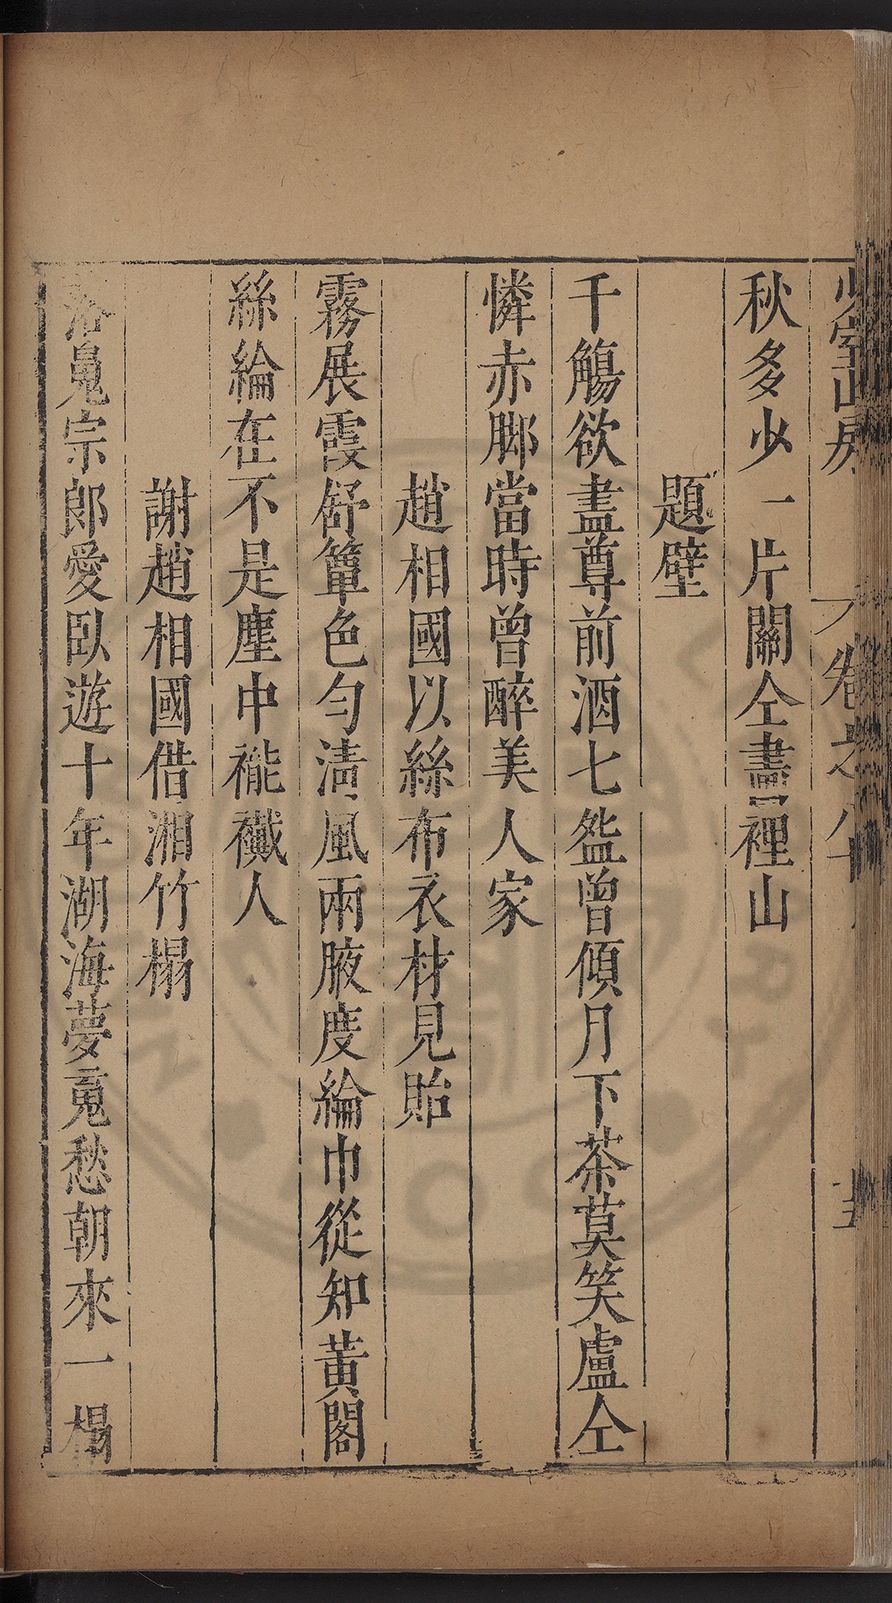 少室山房 卷之八十
秋多少一片關仝畫裡山
題壁
千觴欲盡尊前酒七盌曾傾月下茶莫笑盧仝
憐赤脚當時曾醉美人家
趙相國以絲布衣材見貽
霧展霞舒簟色勻淸風兩腋度綸巾從知黃閣
絲綸在不是塵中䙰襶人
謝趙相國借湘竹榻
落䰟宗郎愛臥遊十年湖海夢䰟愁朝來一榻